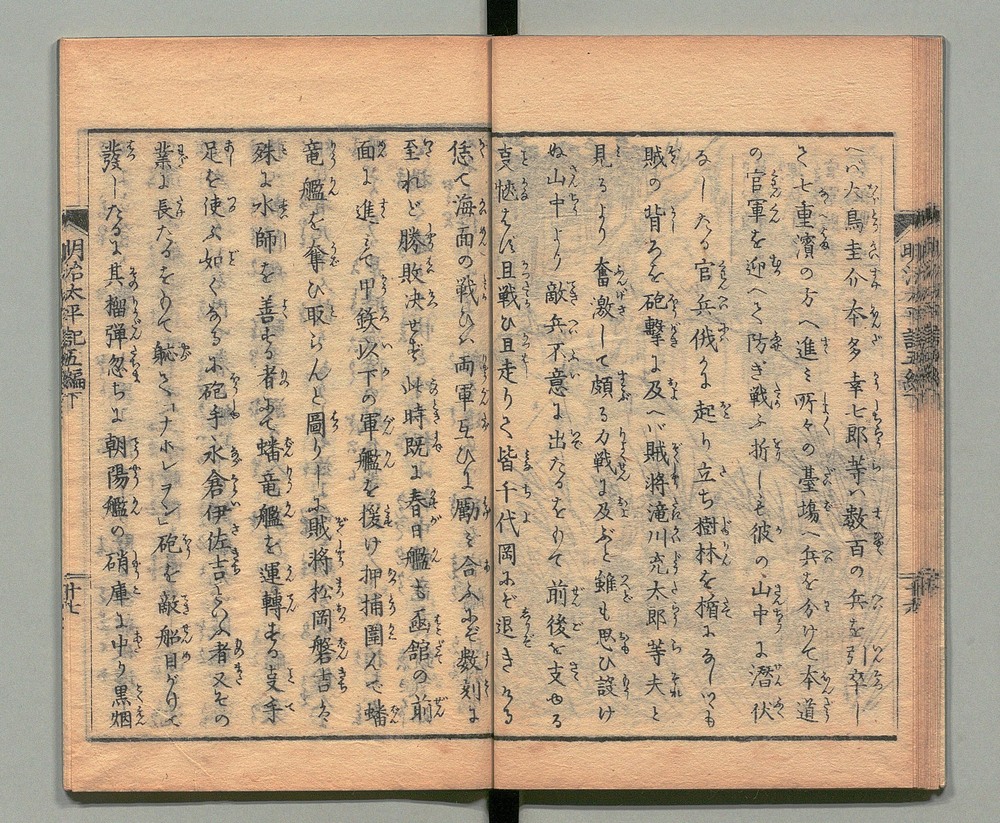 へバ大鳥圭介本多幸七郎等ハ数百の兵を引卒し
て七重濱の方へ進ミ所々の臺塲へ兵を分けて本道
の官軍を迎へて防ぎ戦ふ折しも彼の山中に潜伏
なしたる官兵俄かに起り立ち樹林を楯になしつゝも
賊の背ろを砲撃に及へバ賊將滝川充太郎等夫と
見るより奮激して頗る力戦に及ぶと雖も思ひ設け
ぬ山中より敵兵不意に出たるをもて前後を支ゆる
事愜はず且戦ひ且走りて皆千代岡にぞ退きける
恁て海面の戦ひハ両軍互ひに勵ミ合ふにぞ数刻に
至れど勝敗決せず此時既に春日艦も函館の前
面に進ミて甲銕以下の軍艦を援け押捕圍んで蟠
竜艦を奪ひ取らんと圖りしに賊將松岡磐吉ハ
殊に水師を善する者にて蟠竜艦を運轉する事手
足を使ふ如くなるに砲手永倉伊佐吉といふ者又その
業に長たるをもて軈て「ナポレヲン」砲を敵船目がけて
發したるに其榴弾忽ちに朝陽艦の硝庫に中り黒烟
明治太平記五編下
十七